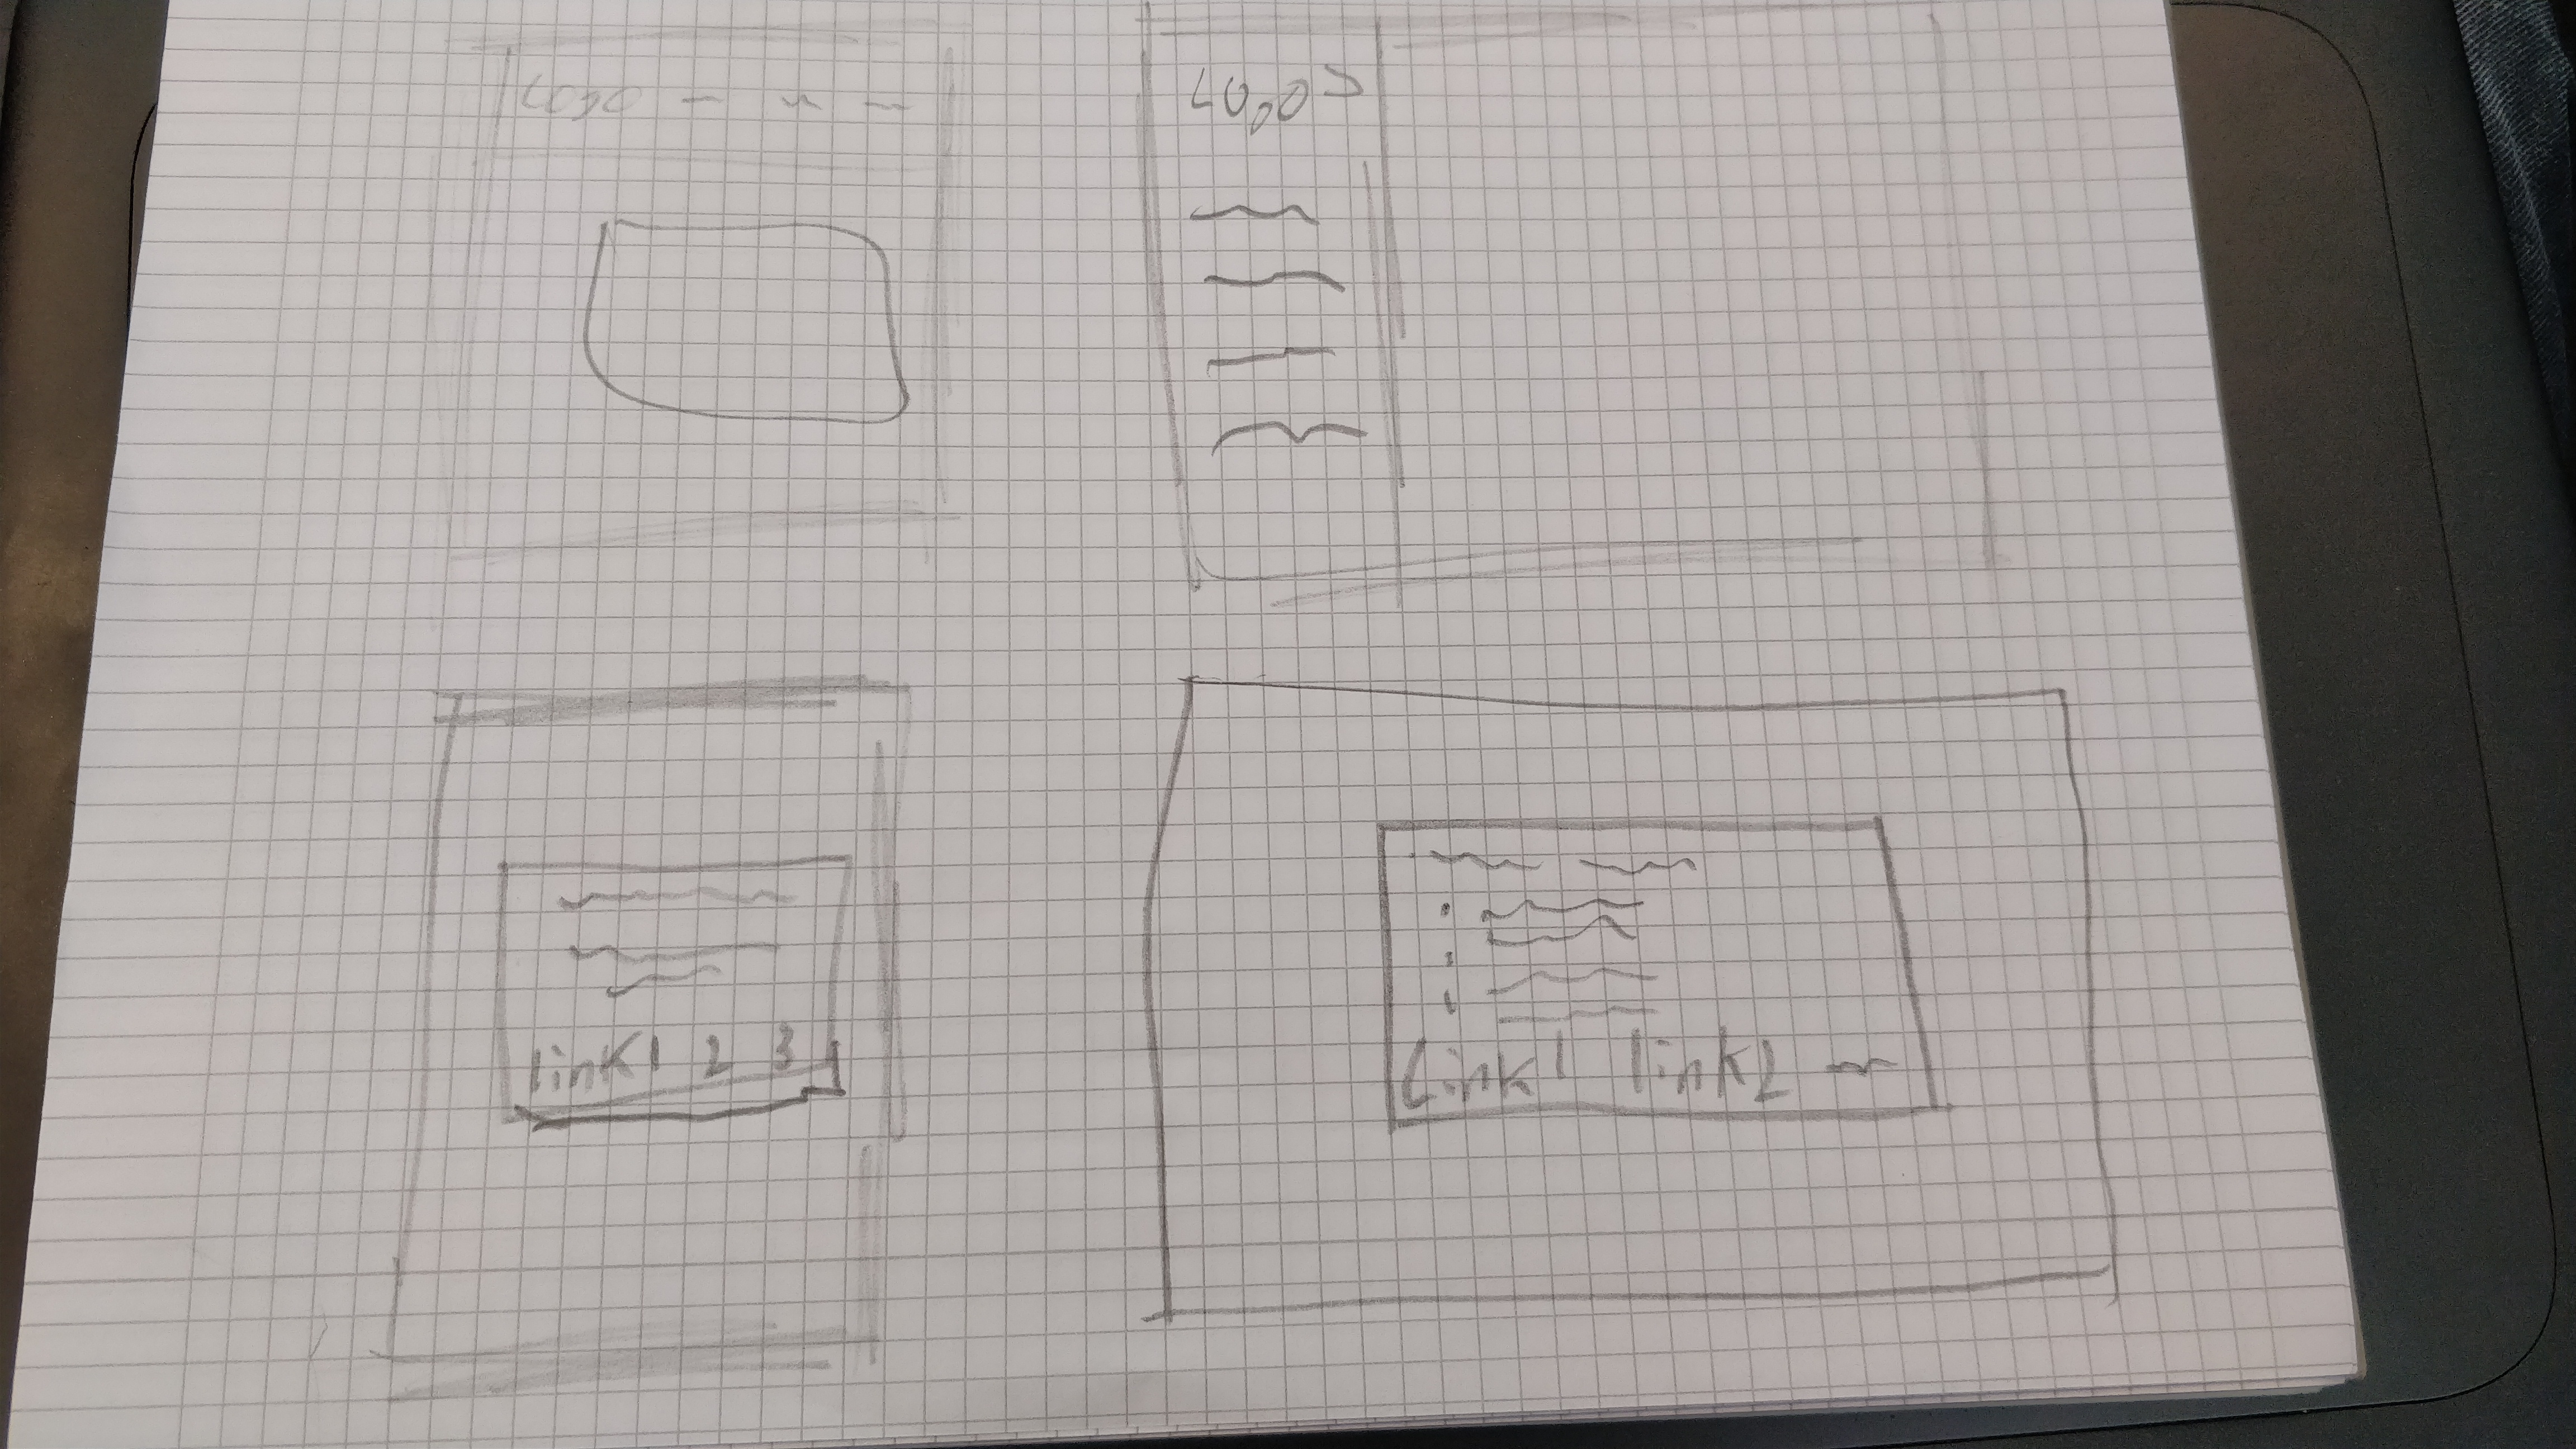 Logo
Logo
link1 2 3
Link1 link2